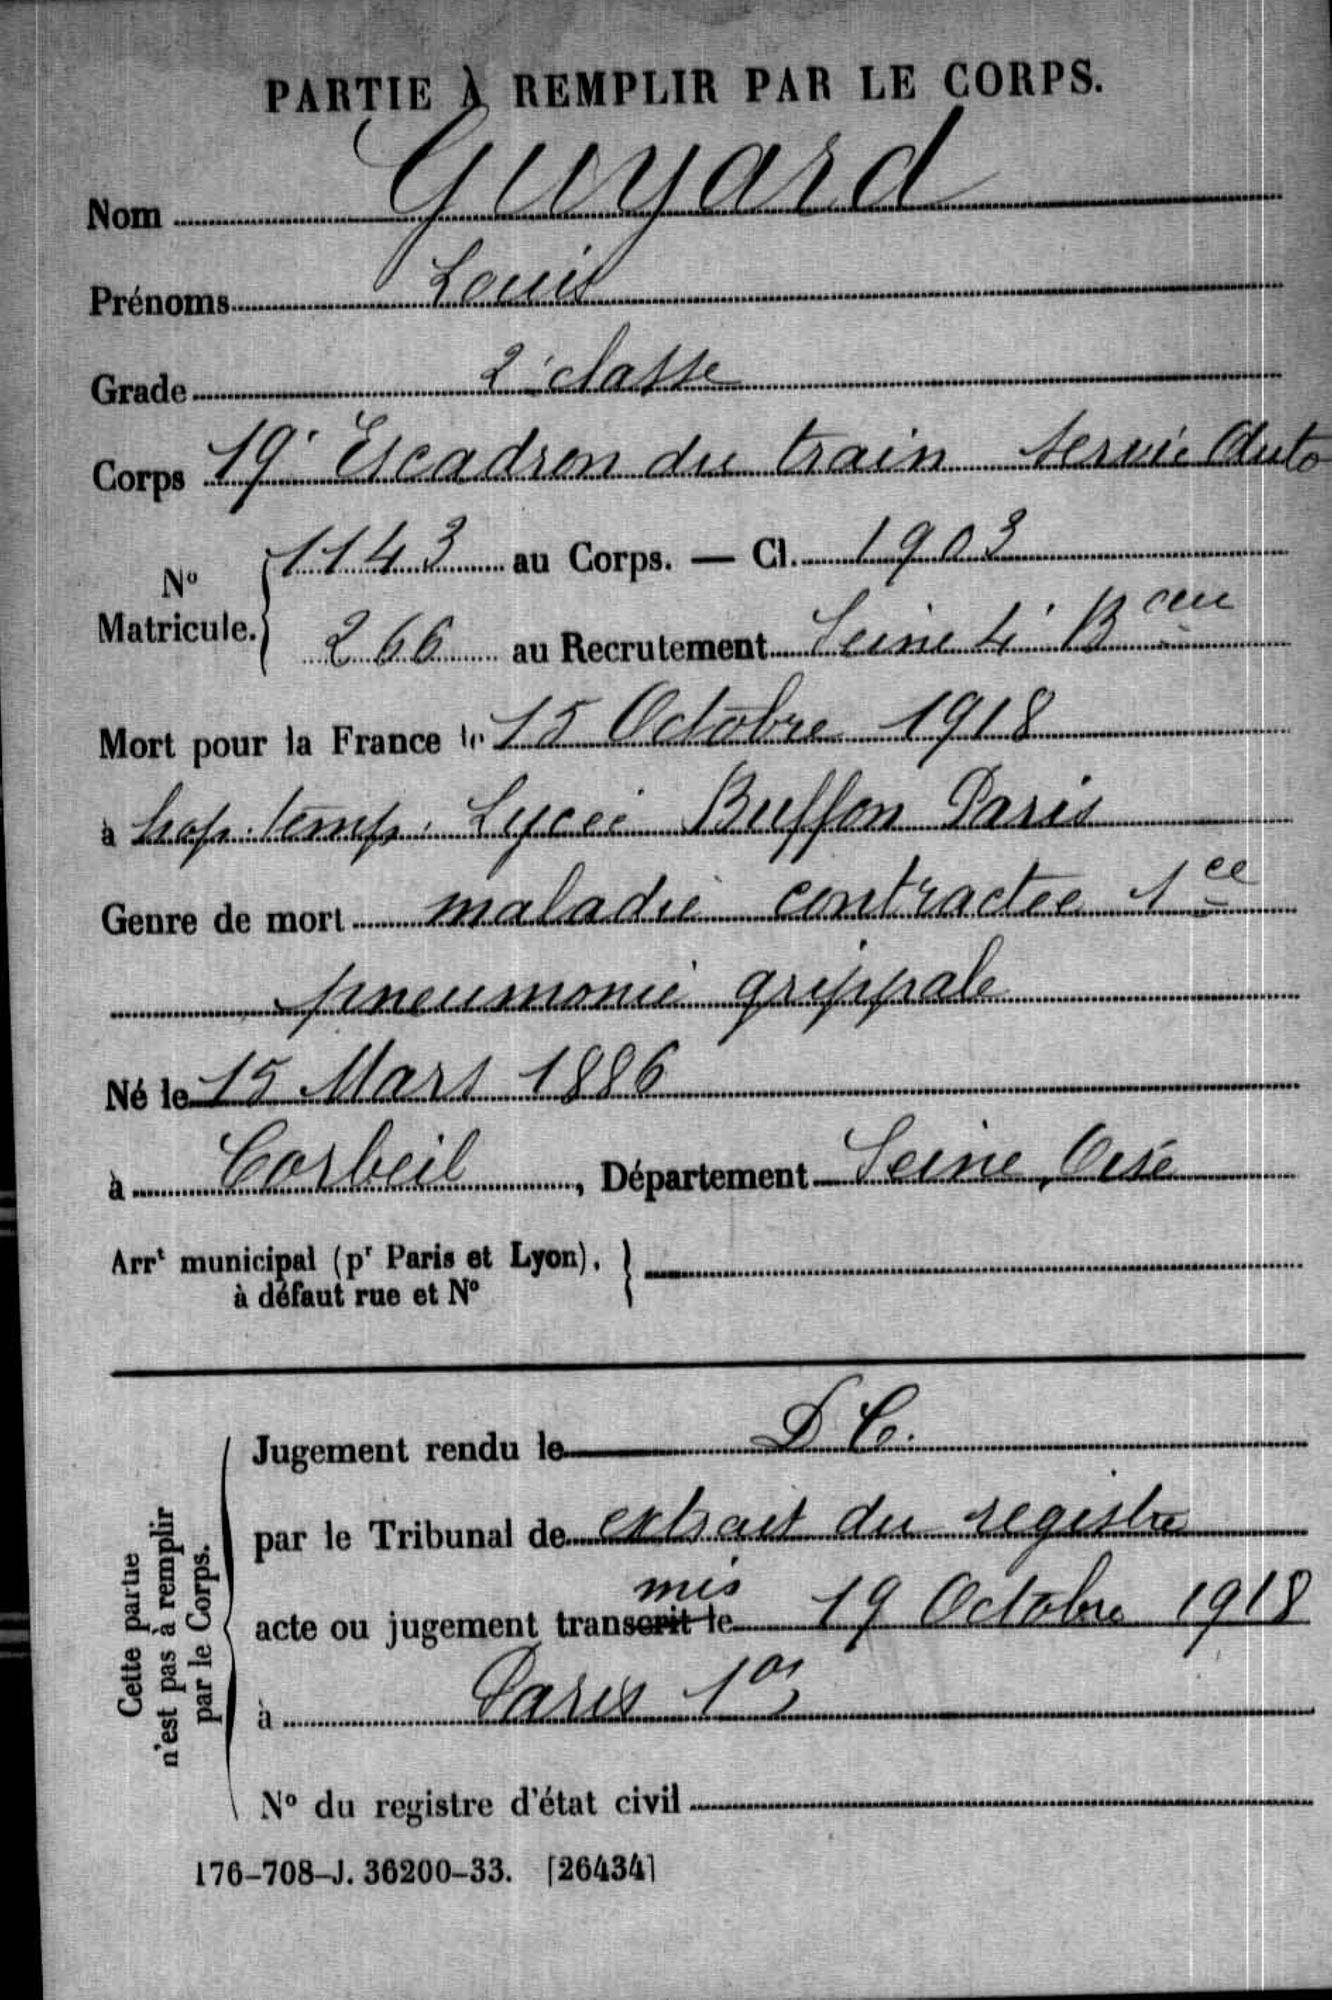 PARTIE À REMPLIR PAR LE CORPS.
Nom Guyard
Prénoms Louis
Grade 2e classe
Corps 19e Escadron du train Service Auto
No Matricule. 1143 au Corps. — Cl. 1903
266 au Recrutement Seine 4e Beau
Mort pour la France le 15 Octobre 1918
à hop. temp. Lycée Buffon Paris
Genre de mort maladie contractée
pneumonie grippale
Né le 15 Mars 1886
à Corbeil, Département Seine, Oise
Arrt municipal (pr Paris et Lyon),
à défaut rue et No
Cette partie
n'est pas à remplir
par le Corps.
Jugement rendu le D C.
par le Tribunal de extrait du registre
mis
acte ou jugement transcrit le 19 Octobre 1918
à Paris
No du registre d'état civil
176-708-J. 36200-33. [26434]